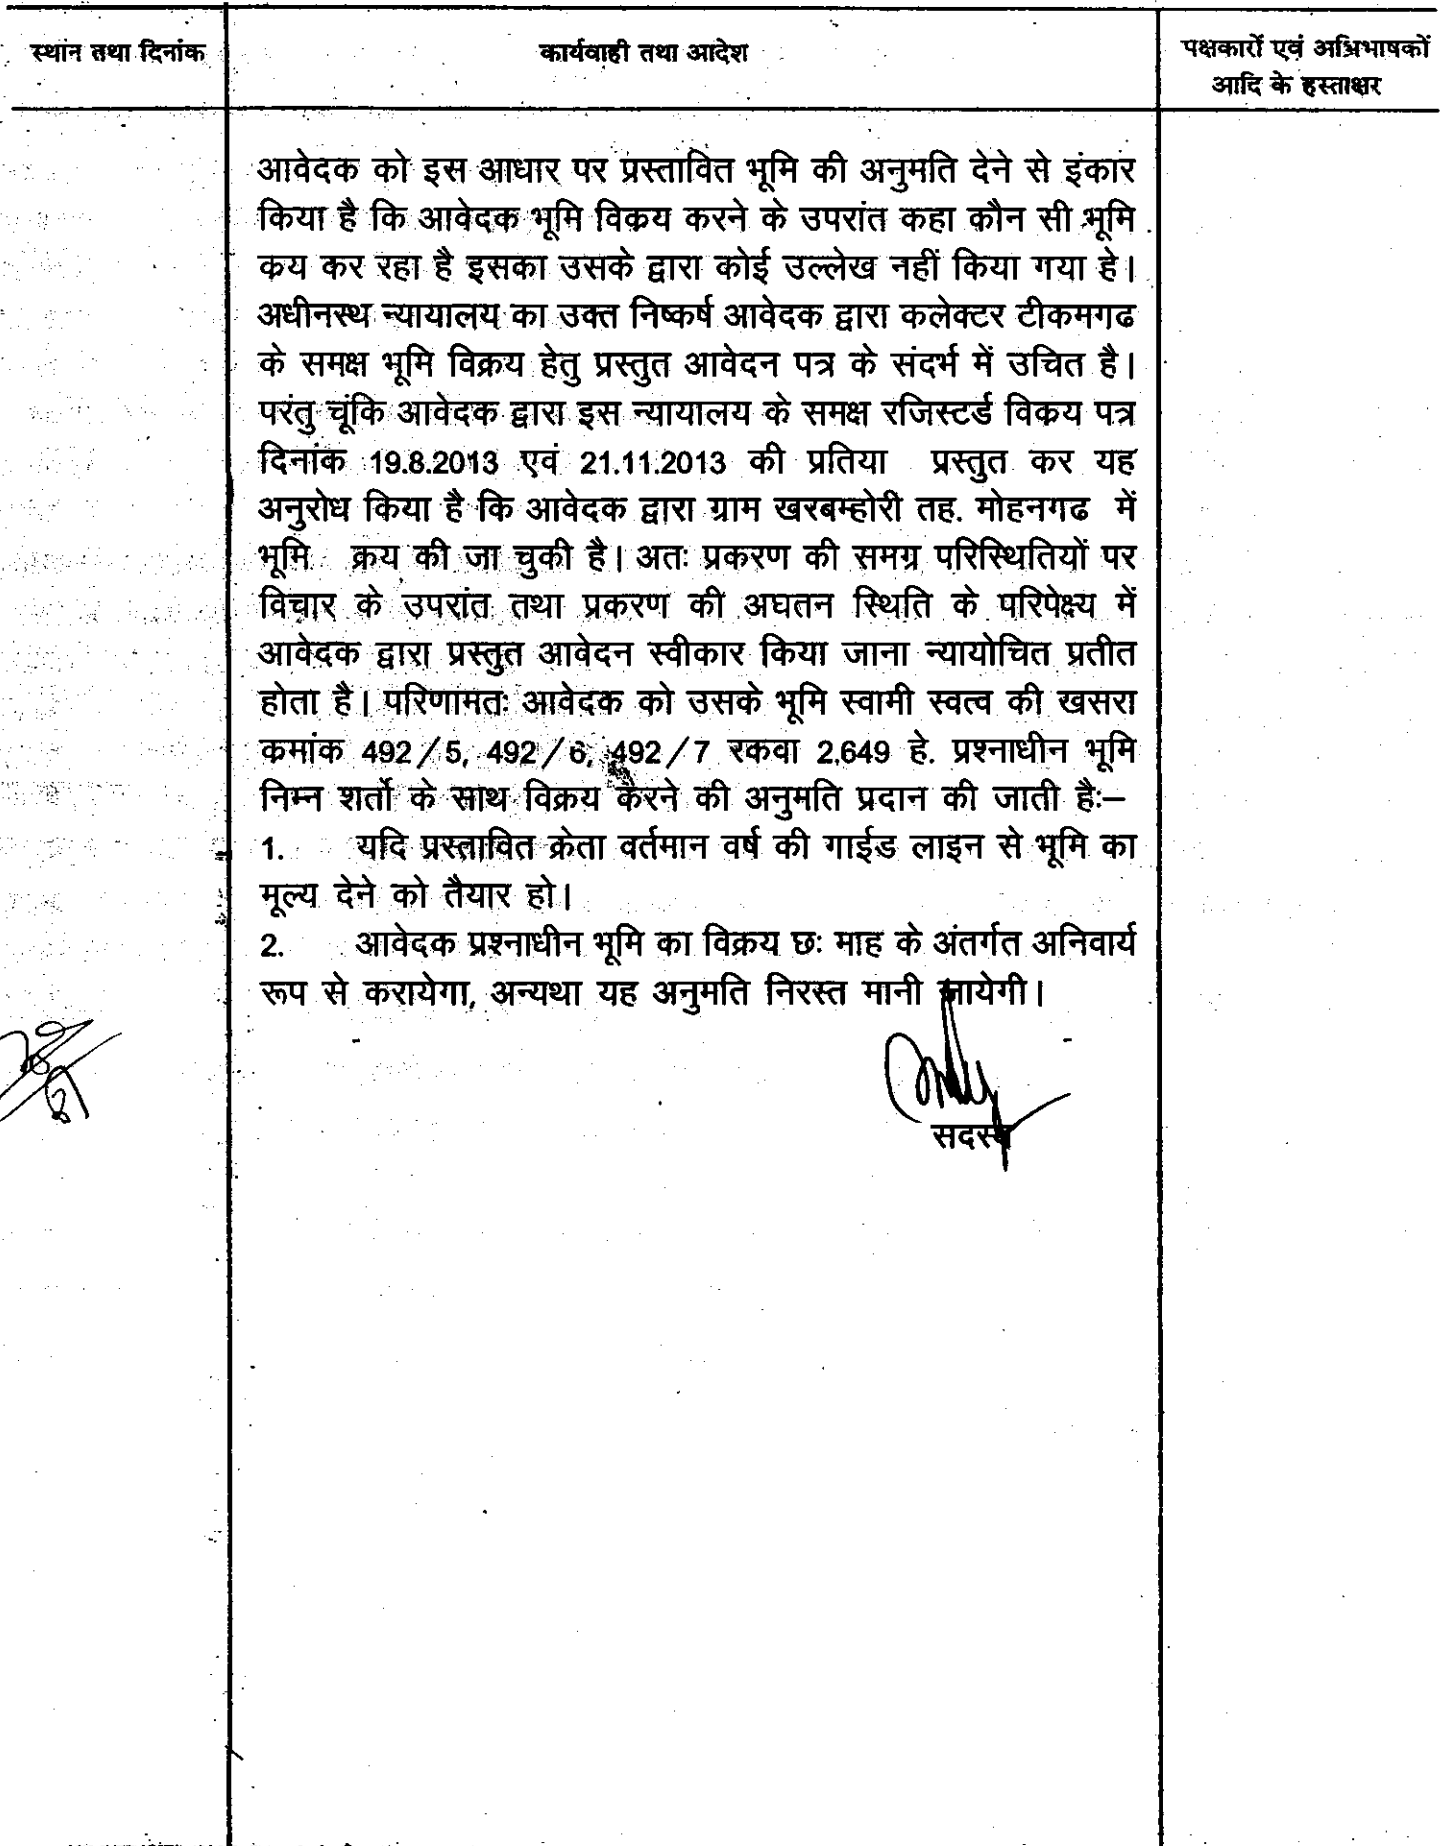 स्थान तथा दिनांक
कार्यवाही तथा आदेश
पक्षकारों एवं अभिभाषकों
आदि के हस्ताक्षर
आवेदक को इस आधार पर प्रस्तावित भूमि की अनुमति देने से इंकार
किया है कि आवेदक भूमि विकय करने के उपरांत कहा कौन सी भूमि
कय कर रहा है इसका उसके द्वारा कोई उल्लेख नहीं किया गया हे।
अधीनस्थ न्यायालय का उक्त निष्कर्ष आवेदक द्वारा कलेक्टर टीकमगढ
के समक्ष भूमि विक्रय हेतु प्रस्तुत आवेदन पत्र के संदर्भ में उचित है।
परंतु चूंकि आवेदक द्वारा इस न्यायालय के समक्ष रजिस्टर्ड विकय पत्र
दिनांक 19.8.2013 एवं 21.11.2013 की प्रतिया प्रस्तुत कर यह
अनुरोध किया है कि आवेदक द्वारा ग्राम खरबम्होरी तह. मोहनगढ में
भूमि क्रय की जा चुकी है। अतः प्रकरण की समग्र परिस्थितियों पर
विचार के उपरांत तथा प्रकरण की अघतन स्थिति के परिपेक्ष्य में
आवेदक द्वारा प्रस्तुत आवेदन स्वीकार किया जाना न्यायोचित प्रतीत
होता है। परिणामतः आवेदक को उसके भूमि स्वामी स्वत्व की खसरा
कमांक 492/5, 492/6, 492/7 रकवा 2.649 हे. प्रश्नाधीन भूमि
निम्न शर्तो के साथ विक्रय करने की अनुमति प्रदान की जाती हैः–
1. यदि प्रस्तावित क्रेता वर्तमान वर्ष की गाईड लाइन से भूमि का
मूल्य देने को तैयार हो।
2. आवेदक प्रश्नाधीन भूमि का विक्रय छः माह के अंतर्गत अनिवार्य
रूप से करायेगा, अन्यथा यह अनुमति निरस्त मानी जायेगी।
सदस्य